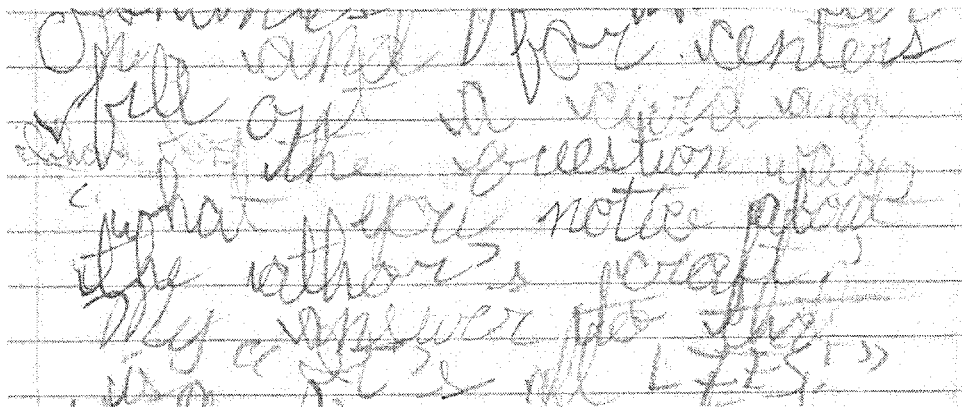 On and for centers
fill out a card and
the question was,
"what you notice about
the athor's craft."
My answer to the
is "It's all LIES!"